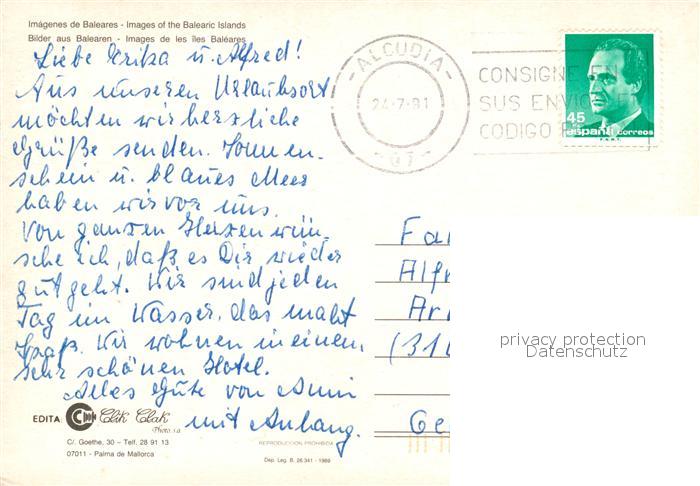 Imágenes de Baleares - Images of the Balearic Islands
Bilder aus Balearen - Images de les îles Baléares
Liebe Erika u. Alfred!
Aus unseren Urlaubsort
möchten wir herzliche
Grüße senden. Sonnen-
schein u. blaues Meer
haben wir vor uns.
Von ganzen Herzen wün-
sche ich, daß es Dir wieder
gut geht. Wir sind jeden
Tag im Wasser, das macht
Spaß. Wir wohnen in einem
sehr schönen Hotel.
Alles Gute von Anni
mit Anhang.
EDITA: Clik Clak
Photo, s.a.
C/. Goethe, 30 – Telf. 28 91 13
07011 - Palma de Mallorca
REPRODUCCION PROHIBIDA
Dep. Leg. B. 26.341 - 1989
ALCUDIA
24-7-91
CONSIGNE EN
SUS ENVIO
CODIGO P
45
españa correos
Fa
Alf
Ar
(31
Ge
privacy protection
Datenschutz